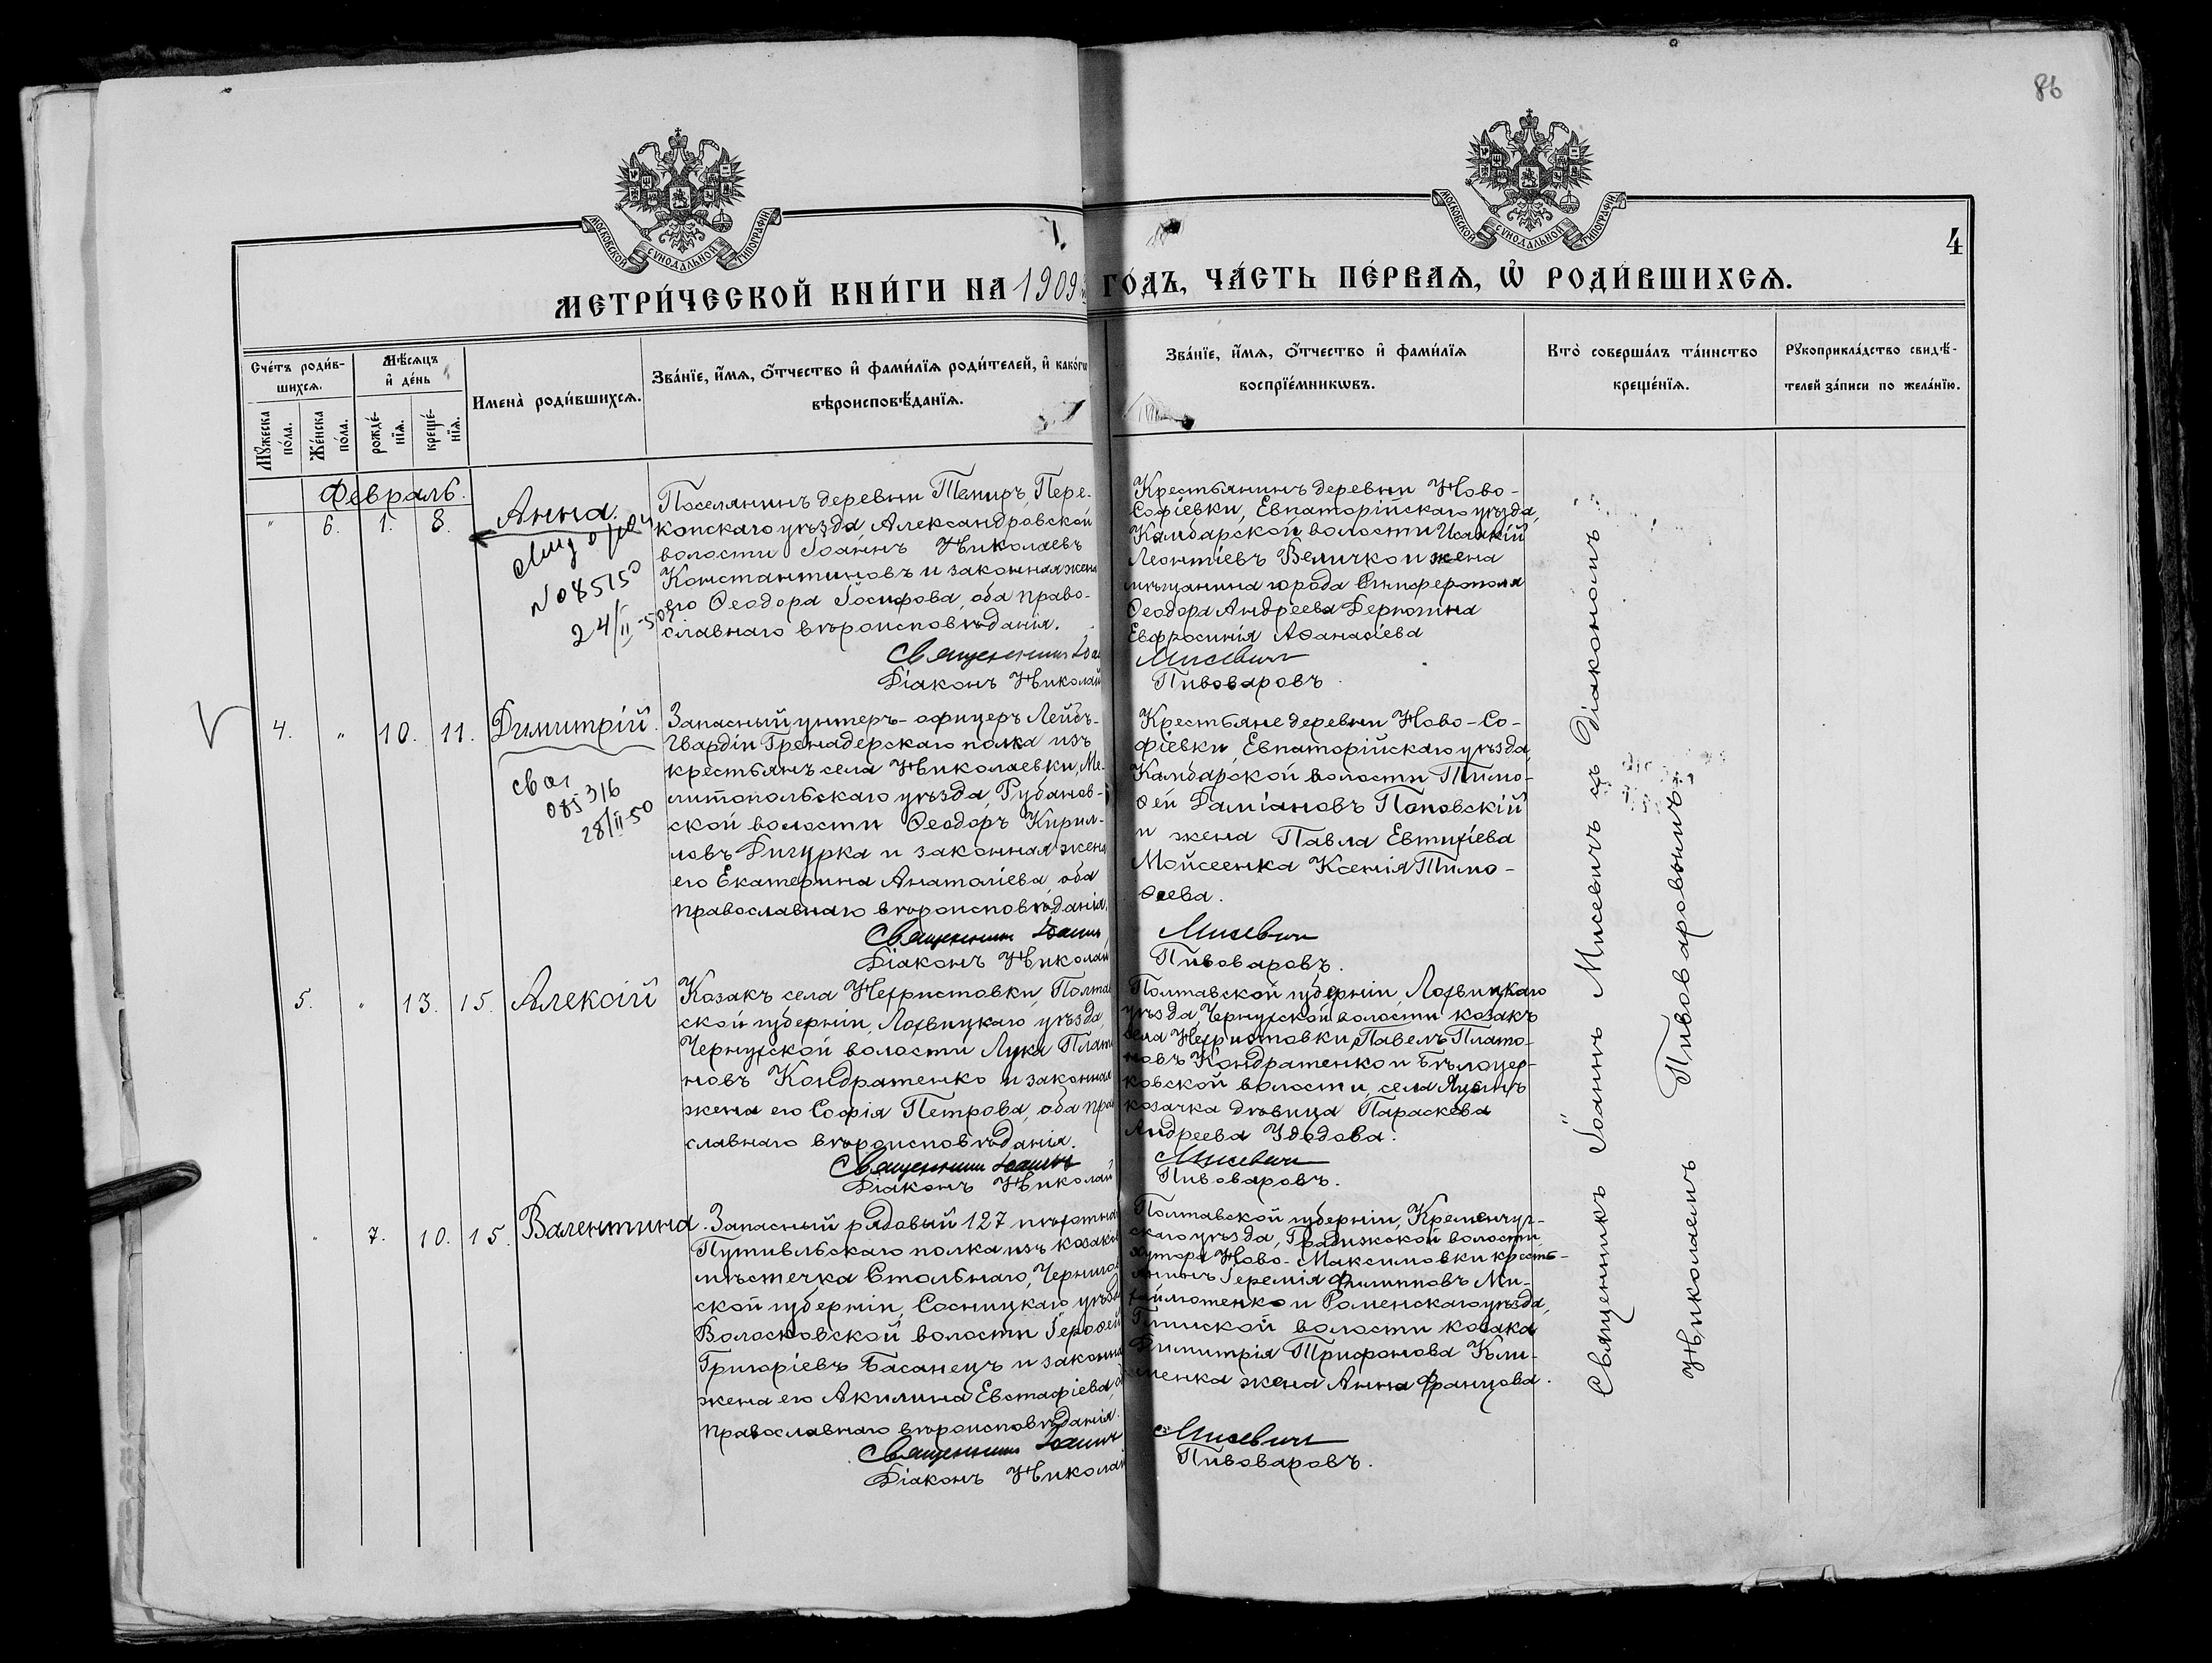 86
МОСКОВСКОЙ СѴНОДАЛЬНОЙ ТИПОГРАФІИ
МОСКОВСКОЙ СѴНОДАЛЬНОЙ ТИПОГРАФІИ
4
МЕТРИ́ЧЕСКОЙ КНИ́ГИ НА 1909 ГО́ДЪ, ЧА́СТЬ ПЕ́РВАѦ, Ѡ҆ РОДИ́ВШИХСѦ.
Сче́тъ роди́в-
шихсѧ.
Мꙋ́жеска
по́ла.
Же́нска
по́ла.
Мѣ́сѧцъ
и҆ де́нь
рожде́-
нїѧ.
креще́-
нїѧ.
Имена̀ роди́вшихсѧ.
Зва́нїе, и҆́мѧ, ѻ҆́тчество и҆ фами́лїѧ роди́телей, и҆ како́гѡ
вѣроисповѣ́данїѧ.
Зва́нїе, и҆́мѧ, ѻ҆́тчество и҆ фами́лїѧ
воспрїе́мникѡвъ.
Кто̀ соверша́лъ та́инство
креще́нїѧ.
Рꙋкоприкла́дство свидѣ́-
телей за́писи по жела́нїю.
Февраль.
" 6. 1. 8. Анна.
№ 085150
24/II-50
Поселянинъ деревни Темиръ, Пере-
копскаго уѣзда, Александровской
волости Іоаннъ Николаевъ
Константиновъ и законная жена
его Ѳеодора Іосифова, оба право-
славнаго вѣроисповѣданія.
Священникъ Іоаннъ
Діаконъ Николай
Крестьянинъ деревни Ново-
Софіевки, Евпаторійскаго уѣзда,
Камбарской волости Исаакій
Леонтіевъ Величко и жена
мѣщанина города Симферополя
Ѳеодора Андреева Дерюгина
Евфросинія Аѳанасіева
Мисевичъ
Пивоваровъ.
4. " 10. 11. Димитрій.
св
085316
28/II-50
Запасный унтеръ-офицеръ Лейбъ-
Гвардіи Гренадерскаго полка изъ
крестьянъ села Николаевки, Ме-
литопольскаго уѣзда, Рубанов-
ской волости Ѳеодоръ Кирил-
ловъ Дигурка и законная жена
его Екатерина Анатоліева, оба
православнаго вѣроисповѣданія.
Священникъ Іоаннъ
Діаконъ Николай
Крестьяне деревни Ново-Со-
фіевки, Евпаторійскаго уѣзда,
Камбарской волости Тимо-
ѳей Даміановъ Поповскій
и жена Павла Евтихіева
Мойсеенка Ксенія Тимо-
ѳеева.
Мисевичъ
Пивоваровъ.
5. " 13. 15. Алексій
Козакъ села Нехристовки, Полтав
ской губерніи, Лохвицкаго уѣзда,
Чернухской волости Лука Плато
новъ Кондратенко и законная
жена его Софія Петрова, оба пра
славнаго вѣроисповѣданія.
Священникъ Іоаннъ
Діаконъ Николай
Полтавской губерніи, Лохвицкаго
уѣзда, Чернухской волости козакъ
села Нехристовки, Павелъ Плато-
новъ Кондратенко и Бѣлоцер-
ковской волости, села
козачка дѣвица Параскева
Андреева Удодова.
Мисевичъ
Пивоваровъ.
" 7. 10. 15. Валентина.
Запасный рядовый 127 пѣхотнаго
Путивльскаго полка изъ козаковъ
мѣстечка Стольнаго, Чернигов
ской губерніи, Сосницкаго уѣзда
Волосковской волости Героѳей
Григоріевъ Басанецъ и законная
жена его Акилина Евстафіева, об
православнаго вѣроисповѣданія.
Священникъ Іоаннъ
Діаконъ Николай
Полтавской губерніи, Кременчуг-
скаго уѣзда, Градижской волости,
хутора Ново-Максимовки кресть-
янинъ Іеремія Филипповъ Ми-
хайлютенко и Роменскаго уѣзда,
Глинской волости козака
Димитрія Трифонова Кли-
менка жена Анна Францова.
Мисевичъ
Пивоваровъ.
Священникъ Іоаннъ Мисевичъ съ Діакономъ
Николаемъ Пивоваровымъ.